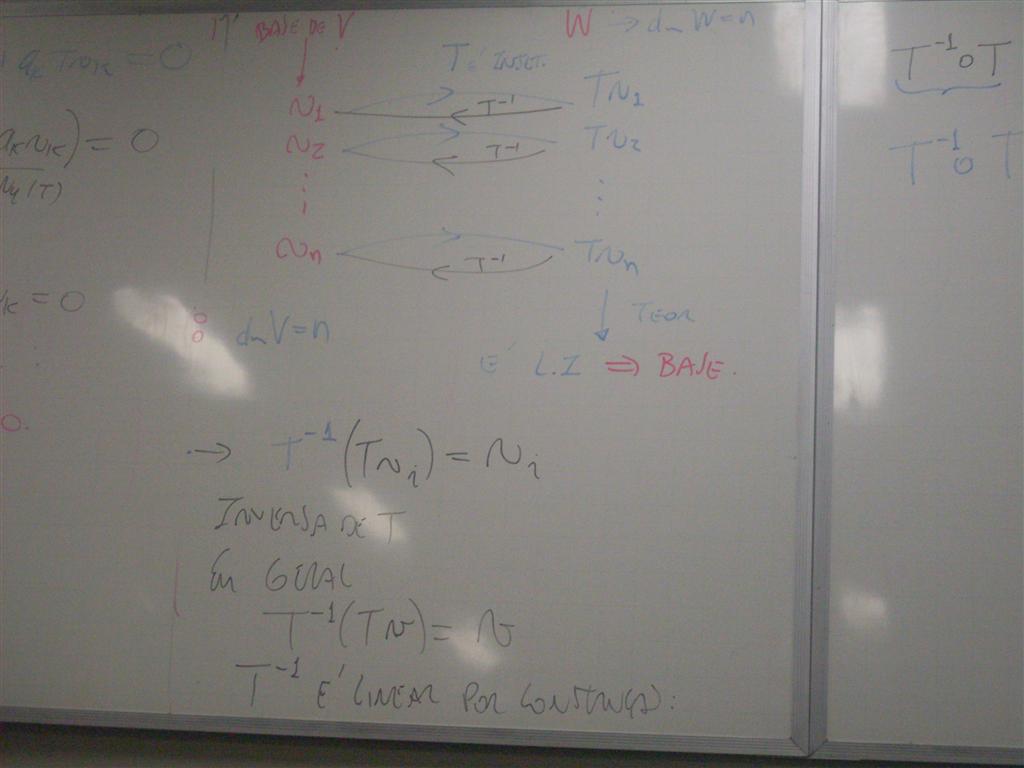 a_k T v_k = 0
a_k v_k) = 0
(T)
k = 0
0.
BASE DE V
W → dim W = n
T É INJET.
v_1 T^{-1} T v_1
v_2 T^{-1} T v_2
⋮ ⋮
v_n T^{-1} T v_n
dim V = n
TEOR
É L.I ⇒ BASE.
→ T^{-1}(T v_i) = v_i
INVERSA DE T
EM GERAL
T^{-1}(T v) = v
T^{-1} É LINEAR POR CONSTRUÇÃO:
T^{-1} o T
T^{-1} o T